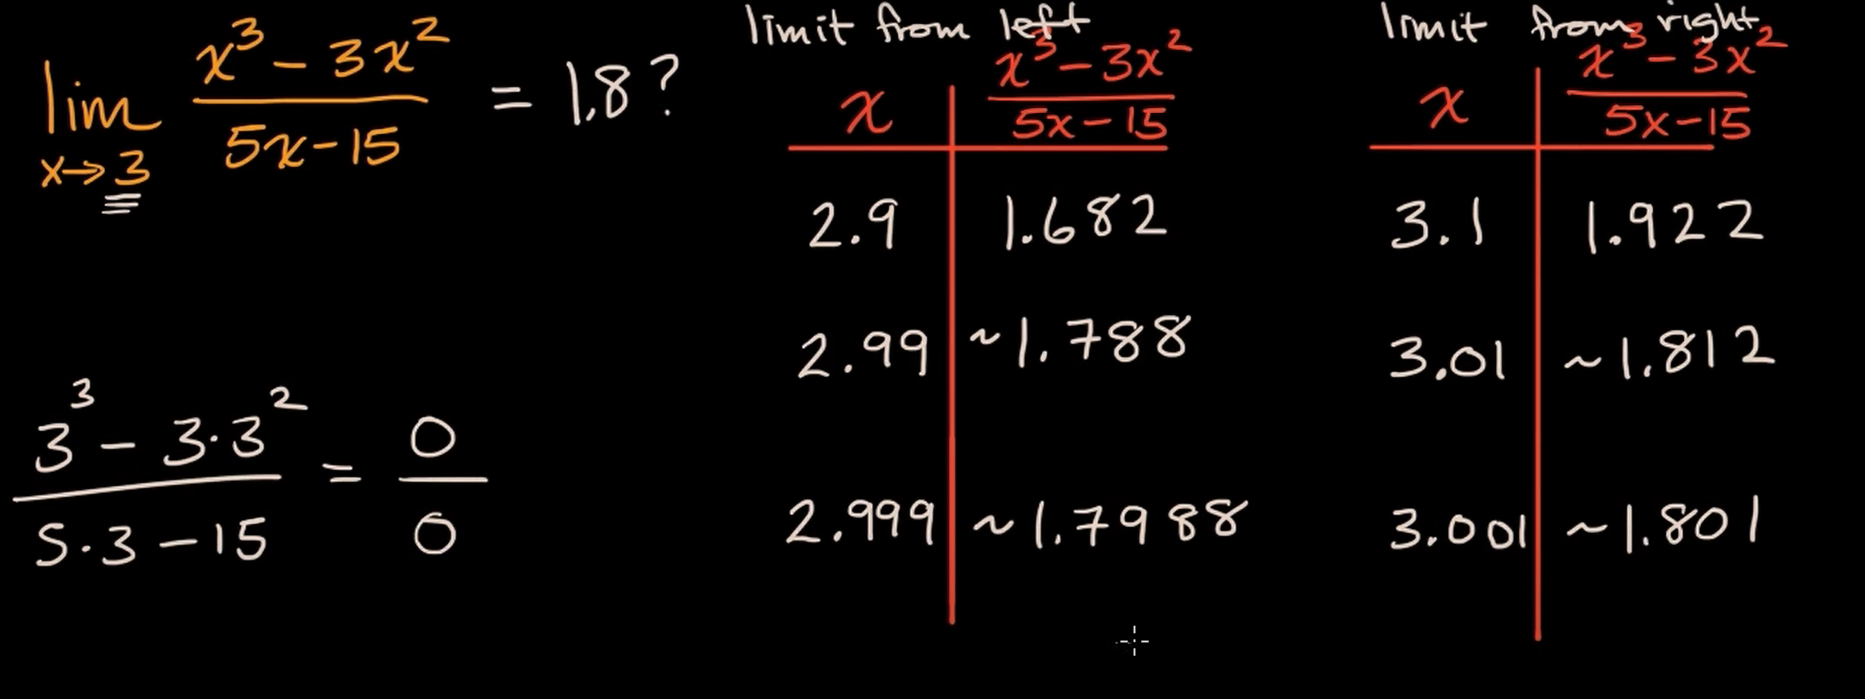 lim x→3 (x³ − 3x²)/(5x − 15) = 1.8?
(3³ − 3·3²)/(5·3 − 15) = 0/0
limit from left
x | (x³ − 3x²)/(5x − 15)
2.9 | 1.682
2.99 | ~1.788
2.999 | ~1.7988
limit from right
x | (x³ − 3x²)/(5x − 15)
3.1 | 1.922
3.01 | ~1.812
3.001 | ~1.801